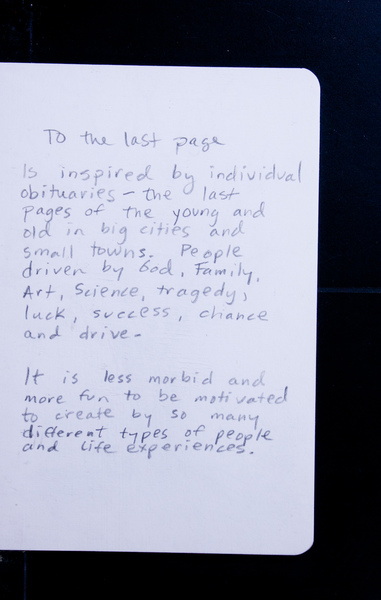 To the last page
Is inspired by individual
obituaries - the last
pages of the young and
old in big cities and
small towns. People
driven by God, Family,
Art, Science, tragedy,
luck, success, chance
and drive.
It is less morbid and
more fun to be motivated
to create by so many
different types of people
and life experiences.